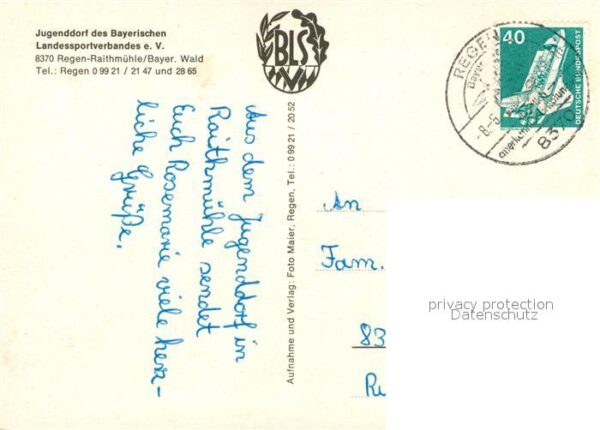 Jugenddorf des Bayerischen
Landessportverbandes e. V.
8370 Regen-Raithmühle/Bayer. Wald
Tel.: Regen 0 99 21 / 21 47 und 28 65
BLS
40
DEUTSCHE BUNDESPOST
REGEN
8370
Aus dem Jugenddorf in
Raithmühle sendet
Euch Rosemarie viele herz-
liche Grüße.
Aufnahme und Verlag: Foto Maier, Regen, Tel.: 0 99 21 / 20 52
An
Fam.
83
privacy protection
Datenschutz